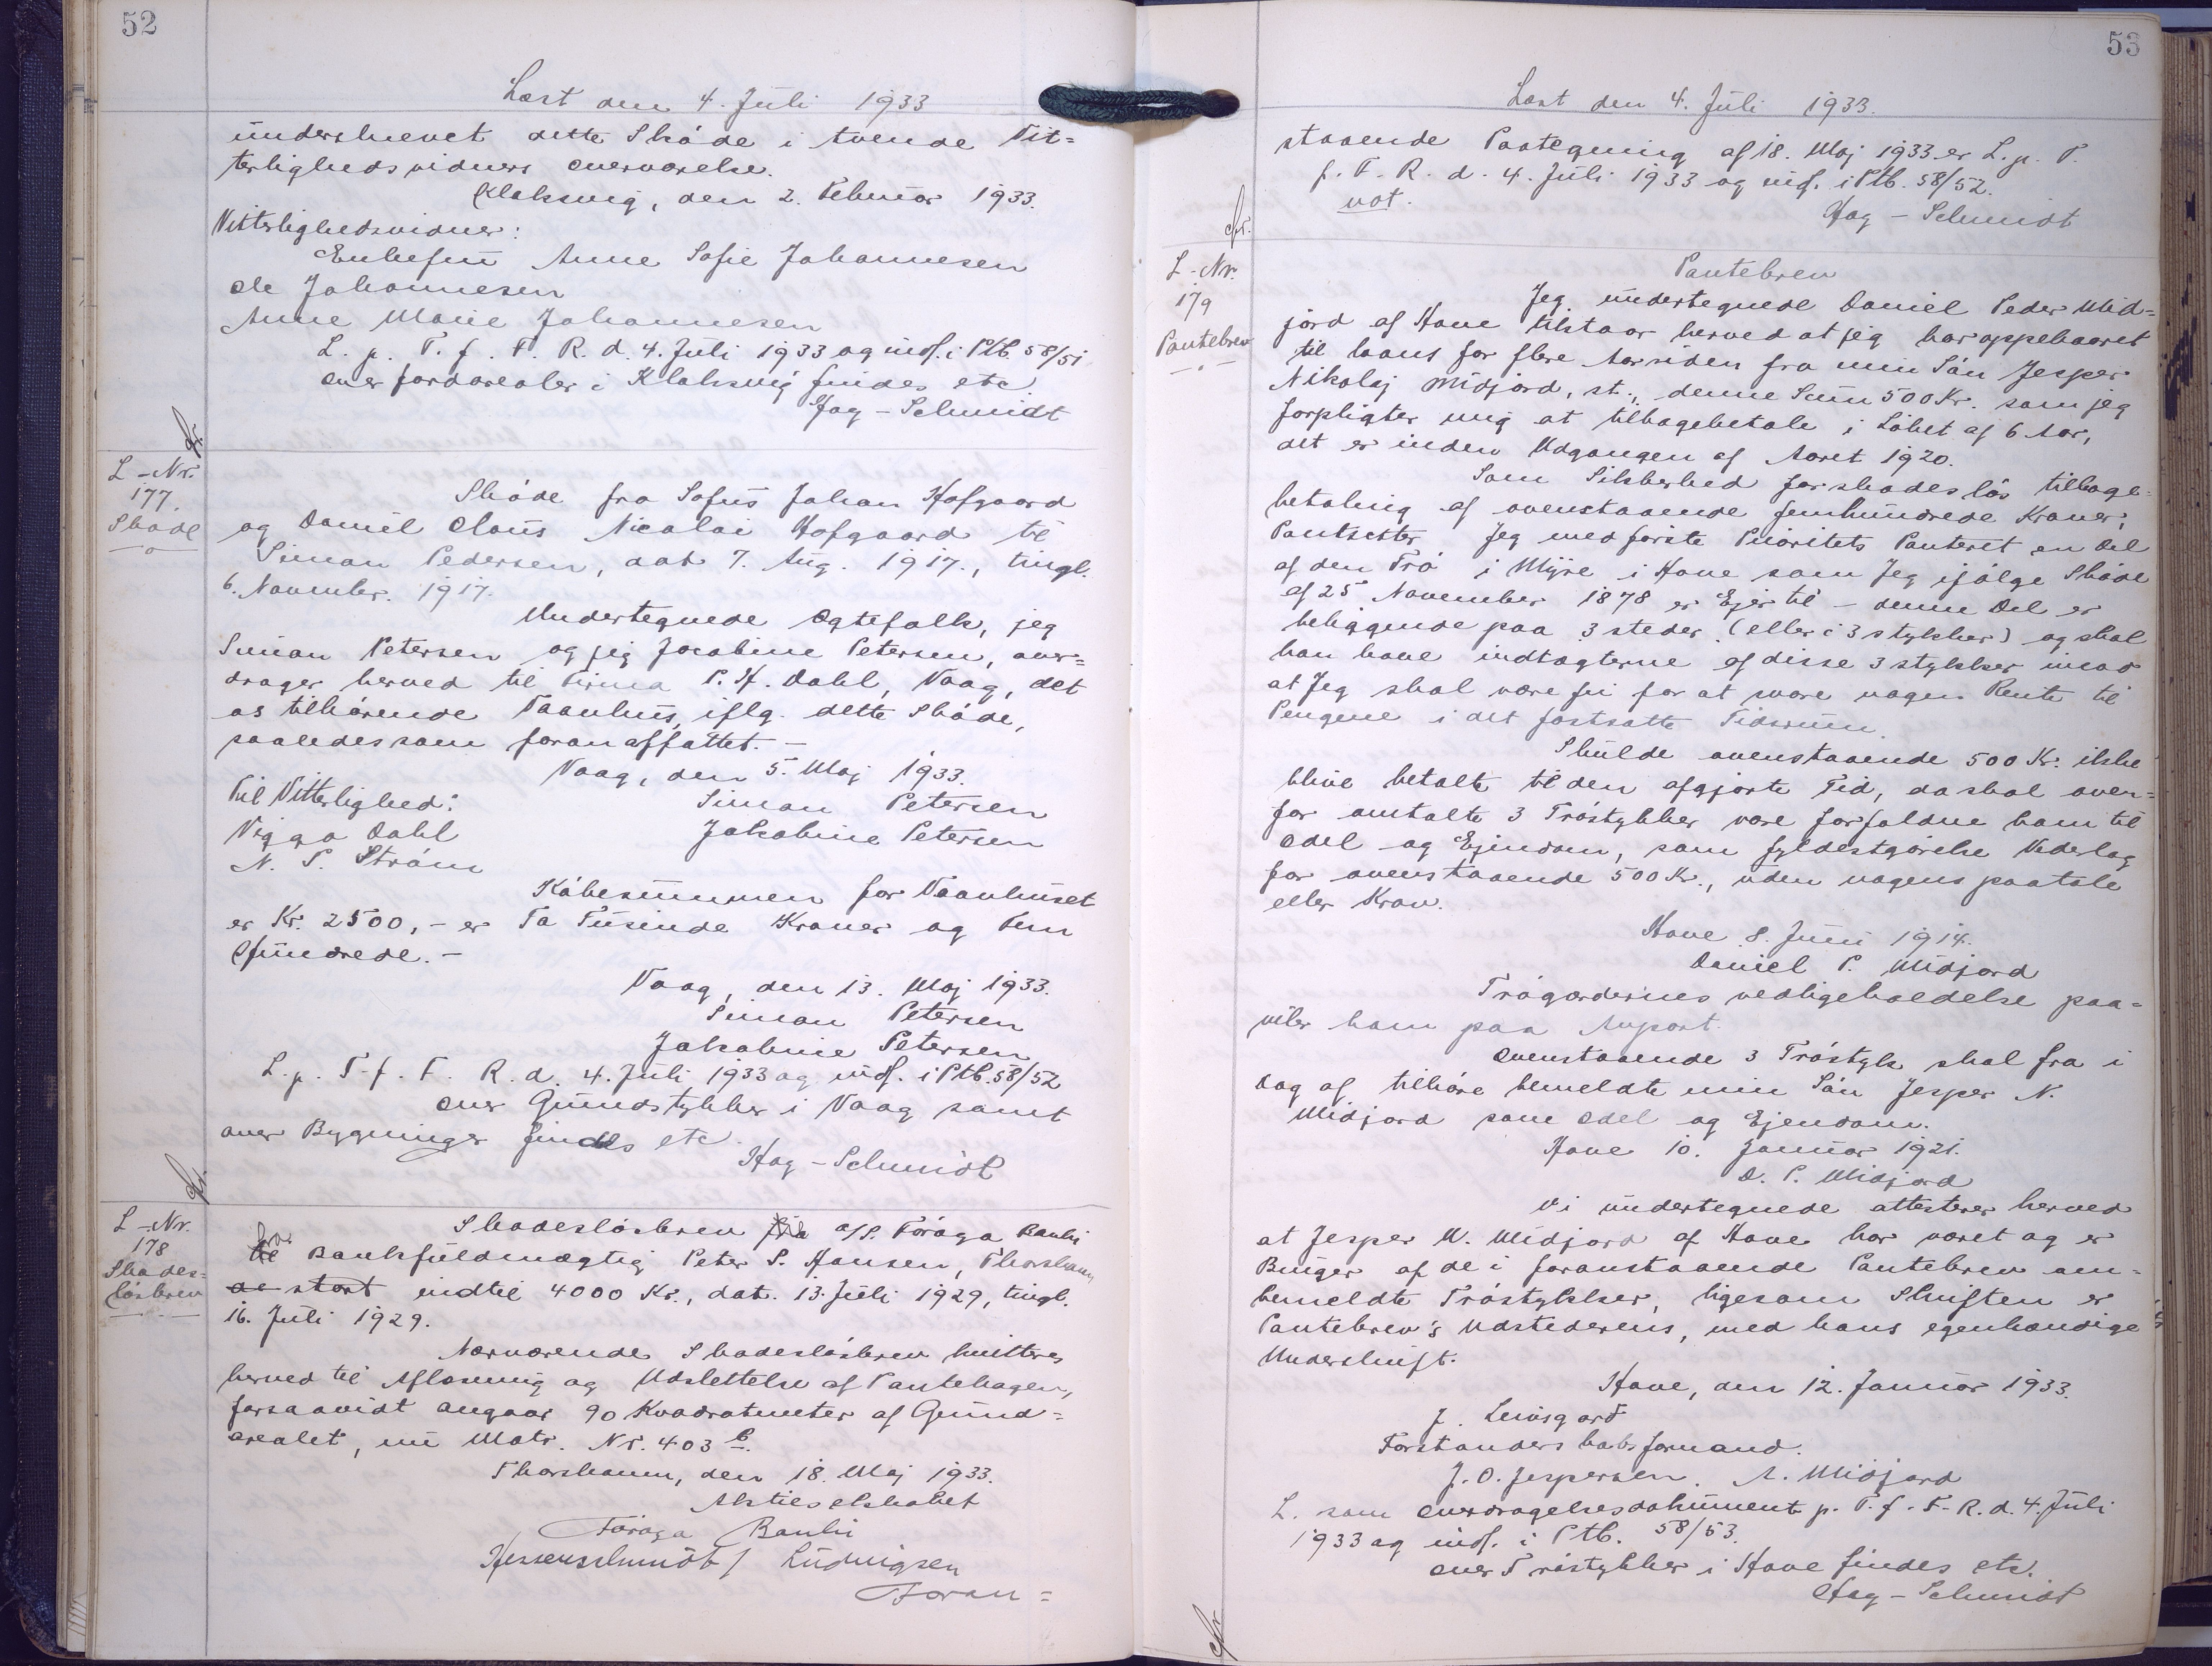 52
Læst den 4. Juli 1933
underskrevet dette Skøde i tvende Vit=
terlighedsvidners overværelse.
Klaksvig, den 2. Februar 1933.
Vitterlighedsvidner:
Enkefru Anne Sofie Johannesen
Ole Johannesen
Anne Marie Johannesen
L. p. T. f. F. R. d. 4. Juli 1933 og indf. i Ptb. 58/51
over Jordarealer i Klaksvig findes etc.
Høg-Schmidt
L-Nr.
177.
Skøde
Skøde fra Sofus Johan Hofgaard
og Daniel Claus Nicolai Hofgaard til
Simon Pedersen, dat 7. Aug. 1917., tingl.
6. November. 1917.
Undertegnede Ægtefolk, jeg
Simon Petersen og jeg Jacobine Petersen, over=
drager herved til Firma P. H. Dahl, Vaag, det
os tilhørende Vaanhus, iflg. dette Skøde,
saaledes som foran affattet. -
Vaag, den 5. Maj 1933.
Til Vitterlighed:
Simon Petersen
Viggo Dahl
Jakobine Petersen
N. P. Strøm
Købesummen for Vaanhuset
er Kr. 2500,- er To Tusinde Kroner og Fem
Hundrede. -
Vaag, den 13. Maj 1933.
Simon Petersen
Jakobine Petersen
L. p. T. f. F. R. d. 4. Juli 1933 og indf. i Ptb. 58/52
over Grundstykker i Vaag samt
over Bygninger findes etc.
Høg-Schmidt
L-Nr.
178
Skades=
løsbrev
Skadesløsbrev til A/S. Føroya Banki
fra Bankfuldmægtig Peter S. Hansen, Thorshavn
stort indtil 4000 Kr., dat. 13. Juli 1929, tingl.
16. Juli 1929.
Nærværende Skadesløsbrev kvitteres
herved til Aflæsning og Udslettelse af Pantebogen,
forsaavidt angaar 90 Kvadratmeter af Grund=
arealet, nu Matr. Nr. 403 b.
Thorshavn, den 18. Maj 1933.
Aktieselskabet
Føroya Banki
Hessenschmidt / Ludvigsen
Foran=
53
Læst den 4. Juli 1933.
staaende Paategning af 18. Maj 1933 er L. p. T.
f. F. R. d. 4. Juli 1933 og indf. i Ptb. 58/52.
not.
Høg-Schmidt
L-Nr.
179
Pantebrev
Pantebrev
Jeg undertegnede Daniel Peder Mid=
jord af Hove tilstaar herved at jeg har oppebaaret
til laans for flere Aar siden fra min Søn Jesper
Nikolaj Midjord, st., denne Sum 500 Kr. som jeg
forpligter mig at tilbagebetale i Løbet af 6 Aar,
det er inden Udgangen af Aaret 1920.
Som Sikkerhed for skadesløs tilbage=
betaling af ovenstaaende femhundrede Kroner;
Pantsetter Jeg med første Prioritets Panteret en Del
af den Trø i Myre i Hove som Jeg ifølge Skøde
af 25 November 1878 er Ejer til - denne Del er
beliggende paa 3 steder (eller i 3 stykker) og skal
han have indtægterne af disse 3 stykker imod
at Jeg skal være fri for at svare nogen Rente til
Pengene i det fastsatte Tidsrum.
Skulde ovenstaaende 500 Kr. ikke
blive betalte til den afgjorte Tid, da skal oven=
for omtalte 3 Trøstykker være forfaldne ham til
Odel og Ejendom, som fyldestgørelse Vederlag
for ovenstaaende 500 Kr., uden nogens paatale
eller Krav.
Hove 8. Juni 1914.
Daniel P. Midjord
Trøgærdernes vedligeholdelse paa=
hviler ham paa Anpart.
Ovenstaaende 3 Trøstykk skal fra i
Dag af tilhøre bemeldte min Søn Jesper N.
Midjord som Odel og Ejendom.
Hove 10. Januar 1921.
D. P. Midjord
Vi undertegnede attesterer herved
at Jesper N. Midjord af Hove har været og er
Bruger af de i foranstaaende Pantebrev om=
bemeldte Trøstykker, ligesom Skriften er
Pantebrev's Udstederens, med hans egenhændige
Underskrift.
Hove, den 12. Januar 1933.
Forstanderskabsformand.
J. O. Jespersen. A. Midjord
L. som Overdragelsesdokument p. T. f. F. R. d. 4. Juli
1933 og indf. i Ptb. 58/53.
over Trøstykker i Hove findes etc.
Høg-Schmidt